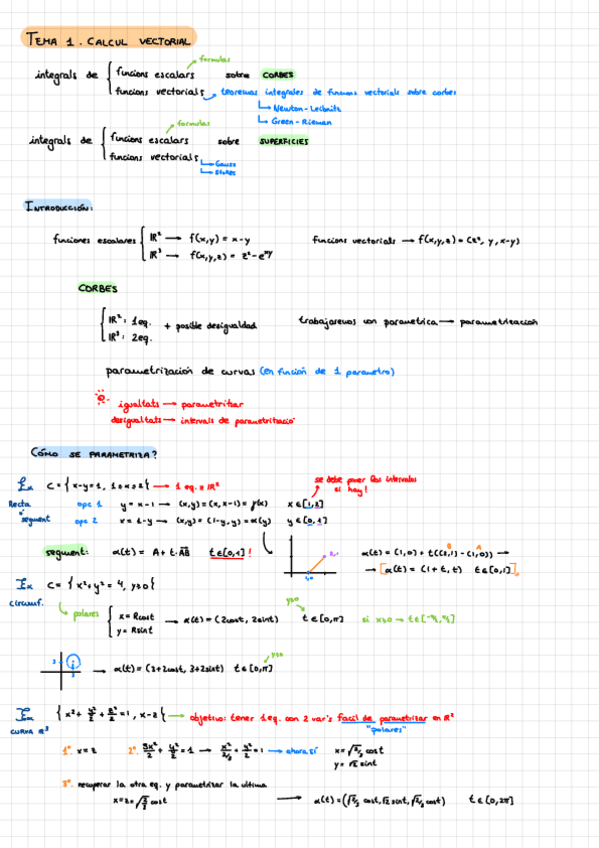 TEMA 1. CALCUL VECTORIAL
formulas
integrals de { funcions escalars sobre CORBES
funcions vectorials → teoremas integrales de funcions vectorials sobre corbes
↳ Newton-Leibnitz
↳ Green-Rieman
formulas
integrals de { funcions escalars sobre SUPERFICIES
funcions vectorials
↳ Gauss
↳ Stokes
INTRODUCCIÓN:
funciones escalares { IR² → f(x,y) = x-y
IR³ → f(x,y,z) = z² - e^xy
funcions vectorials → f(x,y,z) = (z², y, x-y)
CORBES
{ IR²: 1eq. + posible desigualdad
IR³: 2eq.
trabajaremos con parametrica → parametrizacion
parametrización de curvas (en función de 1 parametro)
igualtats → parametritzar
desigualtats → intervals de parametrització
CÓMO SE PARAMETRIZA?
se debe poner los intervalos
si hay!
Ex C = { x-y=1, 1≤x≤2 } → 1 eq. ≡ IR²
Recta o segment
opc 1 y = x-1 → (x,y) = (x, x-1) = γ(x) x ∈ [1,2]
opc 2 x = 1-y → (x,y) = (1-y, y) = α(y) y ∈ [0,1]
segment: α(t) = A + t·AB t ∈ [0,1] !
α(t) = (1,0) + t((2,1) - (1,0)) →
→ [α(t) = (1+t, t) t ∈ [0,1]]
Ex C = { x²+y² = 4, y≥0 }
circumf.
polares { x = Rcost → α(t) = (2cost, 2sint) t ∈ [0,π] si x≥0 → t ∈ [-π/2, π/2]
y = Rsint
y≥0
→ α(t) = (3+2cost, 3+2sint) t ∈ [0,π]
Ex { x² + y²/2 + z²/2 = 1, x=z } → objetivo: tener 1 eq. con 2 var's facil de parametrizar en IR²
"polares"
CURVA IR³
1º. x = z 2º. 3x²/2 + y²/2 = 1 → x²/2/3 + y²/2 = 1 → ahora sí x = √2/3 cost
y = √2 sint
3º. recuperar la otra eq. y parametrizar la ultima
x = z = √2/3 cost → α(t) = (√2/3 cost, √2 sint, √2/3 cost) t ∈ [0,2π]